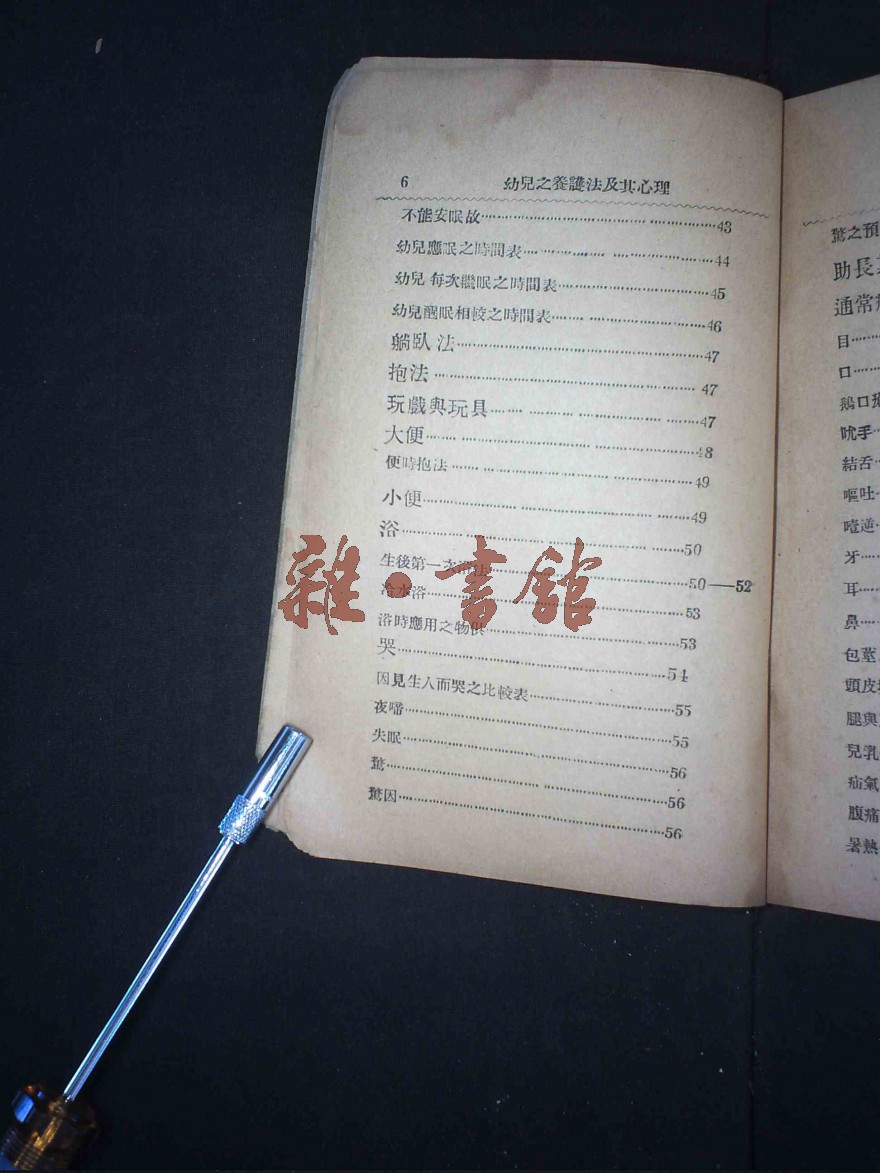 6 幼兒之養護法及其心理
不能安眠故……43
幼兒應眠之時間表……44
幼兒每次繼眠之時間表……45
幼兒醒眠相較之時間表……46
躺臥法……47
抱法……47
玩戲與玩具……47
大便……48
便時抱法……49
小便……49
浴……50
生後第一次浴法……50——52
冷水浴……53
浴時應用之物供……53
哭……54
因見生人而哭之比較表……55
夜啼……55
失眠……56
驚……56
驚因……56
雜·書館
驚之預
助長
通常
目……
口……
鵝口
吮手
結舌
嘔吐
噎逆
牙……
耳……
鼻……
包莖
頭皮
腿與
兒乳
疝氣
腹痛
暑熱